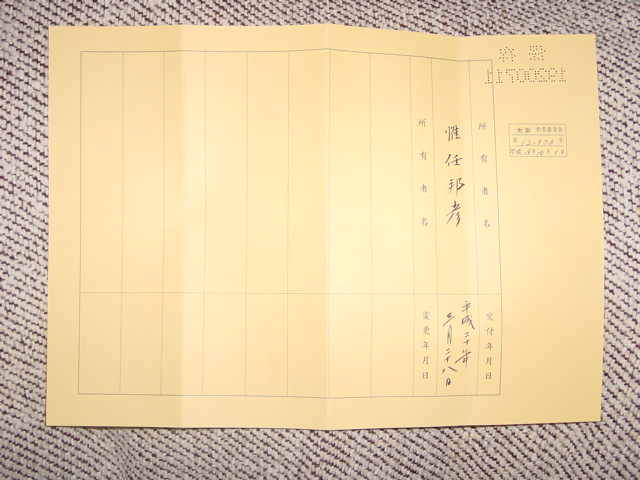 大阪 教育委員会
第 号
平成 19年10月1日
所有者名
交付年月日
惟任邦彦
平成二十年
三月二十八日
所有者名
変更年月日